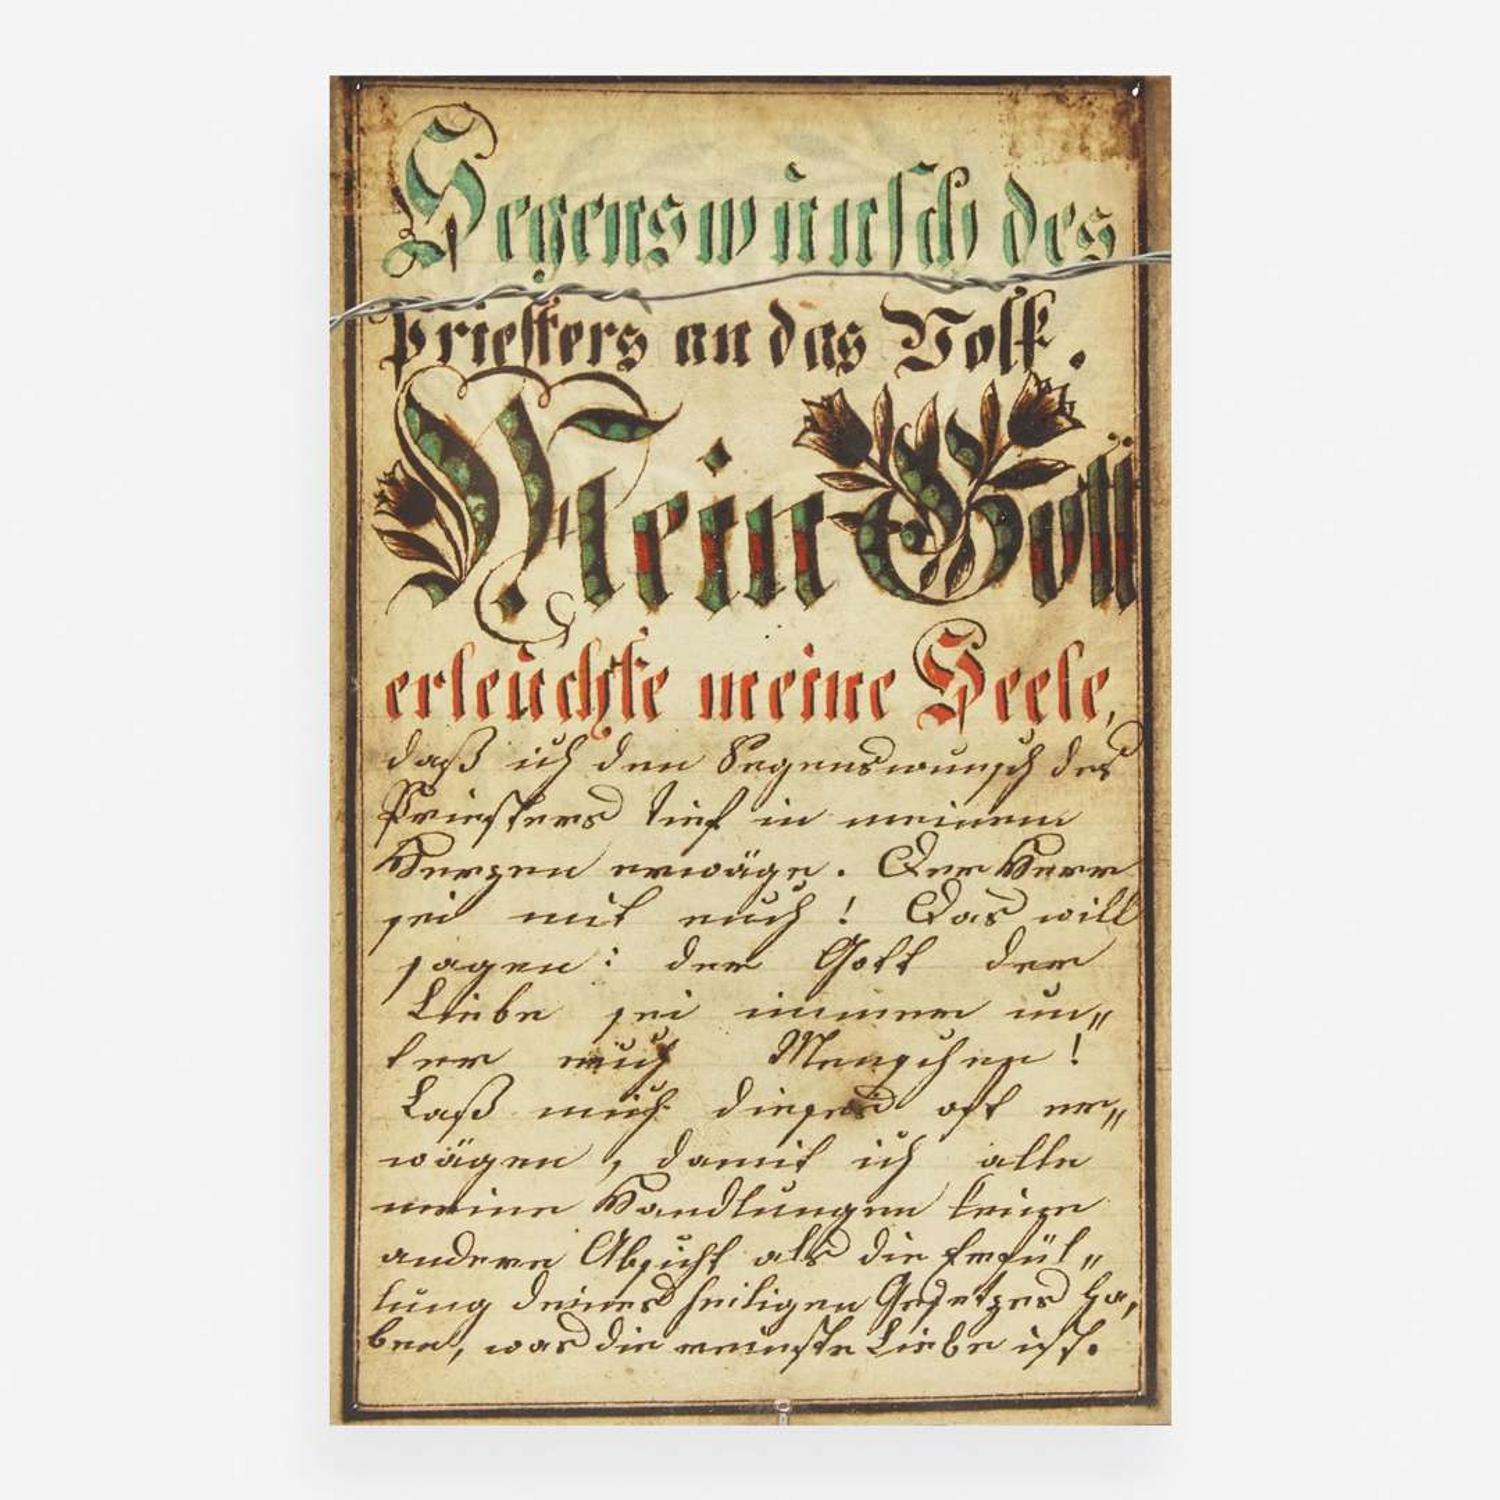 Segenswunsch des
Priesters an das Volk.
Mein Gott
erleuchte meine Seele,
daß ich den Segenswunsch des
Priesters tief in meinem
Herzen erwäge. Der Herr
sei mit euch! Das will
sagen: der Gott der
Liebe sei immer un„
ter euch Menschen!
Laß mich dieses oft er„
wägen, damit ich alle
meine Handlungen keine
andere Absicht als die Erfül„
lung deines heiligen Gesetzes ha,
ben, was die reinste Liebe ist.